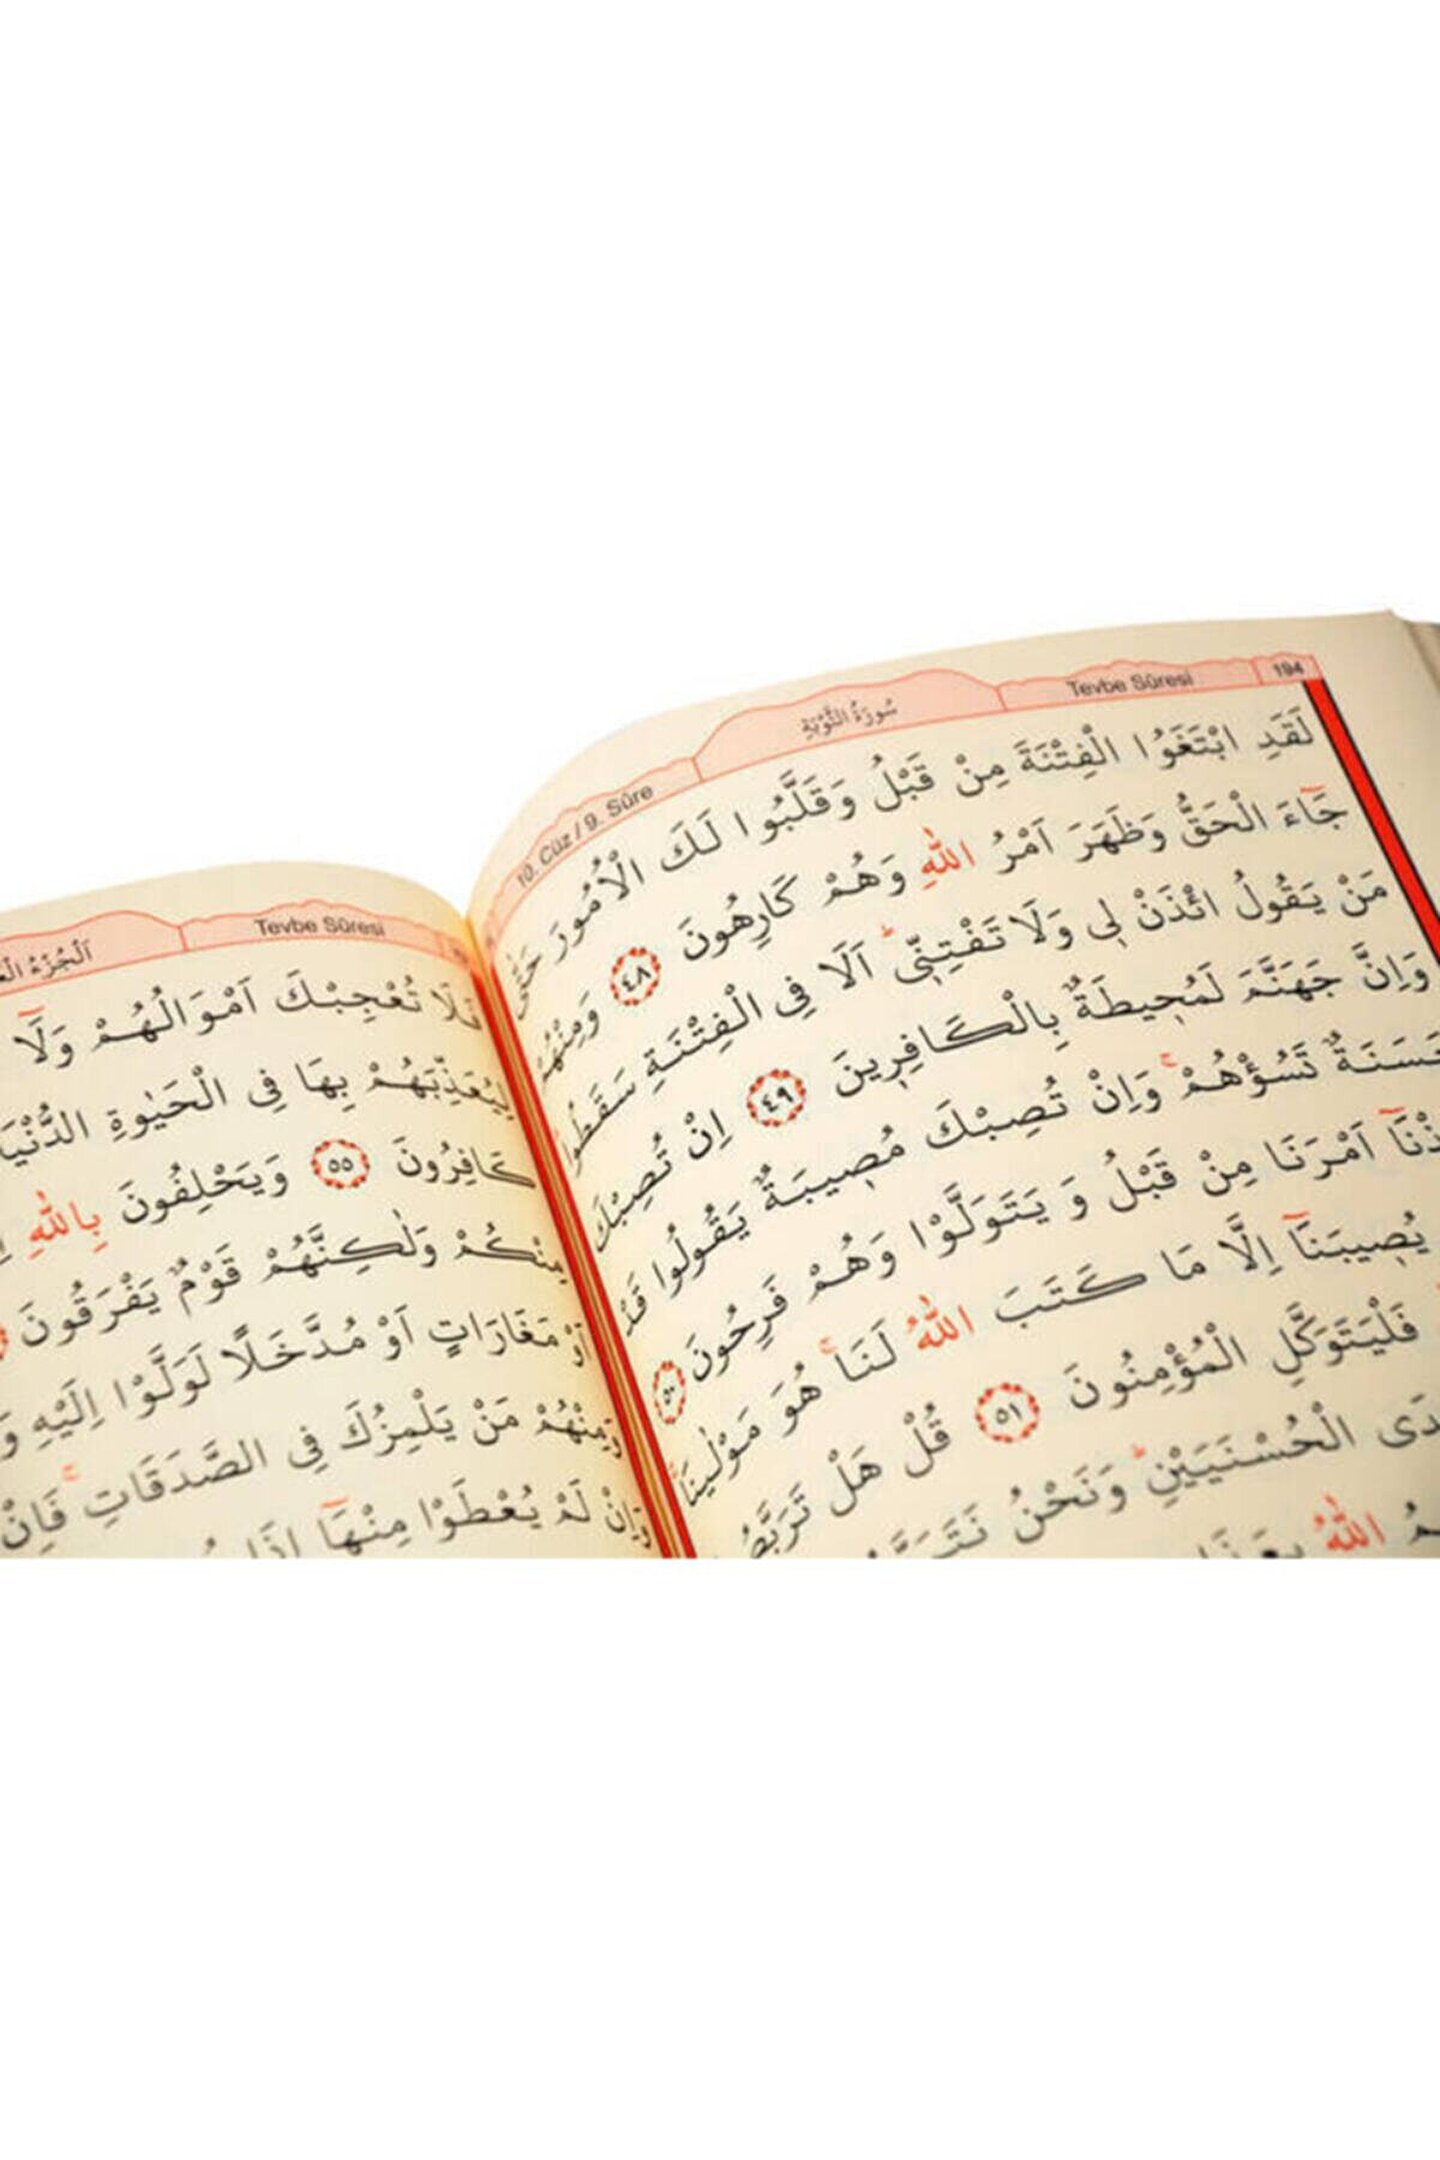 194
Tevbe Sûresi
سُورَةُ التَّوْبَةِ
10. Cüz / 9. Sûre
لَقَدِ ابْتَغَوُا الْفِتْنَةَ مِنْ قَبْلُ وَقَلَّبُوا لَكَ الْاُمُورَ حَتّٰى
جَٓاءَ الْحَقُّ وَظَهَرَ اَمْرُ اللّٰهِ وَهُمْ كَارِهُونَ ﴿٤٨﴾ وَمِنْهُمْ
مَنْ يَقُولُ ائْذَنْ لٖى وَلَا تَفْتِنّٖىؕ اَلَا فِى الْفِتْنَةِ سَقَطُوا
وَاِنَّ جَهَنَّمَ لَمُحٖيطَةٌ بِالْكَافِرٖينَ ﴿٤٩﴾ اِنْ تُصِبْكَ
حَسَنَةٌ تَسُؤْهُمْۚ وَاِنْ تُصِبْكَ مُصٖيبَةٌ يَقُولُوا قَدْ
اَمْرَنَا مِنْ قَبْلُ وَيَتَوَلَّوْا وَهُمْ فَرِحُونَ ﴿٥٠﴾
يُصٖيبَنَٓا اِلَّا مَا كَتَبَ اللّٰهُ لَنَاۚ هُوَ مَوْلٰينَاۚ
فَلْيَتَوَكَّلِ الْمُؤْمِنُونَ ﴿٥١﴾ قُلْ هَلْ
الْحُسْنَيَيْنِؕ وَنَحْنُ
اللّٰهُ
Tevbe Sûresi
اَلْجُزْءُ
فَلَا تُعْجِبْكَ اَمْوَالُهُمْ وَلَٓا
لِيُعَذِّبَهُمْ بِهَا فِى الْحَيٰوةِ الدُّنْيَا
كَافِرُونَ ﴿٥٥﴾ وَيَحْلِفُونَ بِاللّٰهِ
مِنْكُمْ وَلٰكِنَّهُمْ قَوْمٌ يَفْرَقُونَ
اَوْ مَغَارَاتٍ اَوْ مُدَّخَلًا لَوَلَّوْا اِلَيْهِ
وَمِنْهُمْ مَنْ يَلْمِزُكَ فِى الصَّدَقَاتِۚ فَاِنْ
وَاِنْ لَمْ يُعْطَوْا مِنْهَٓا اِذَا